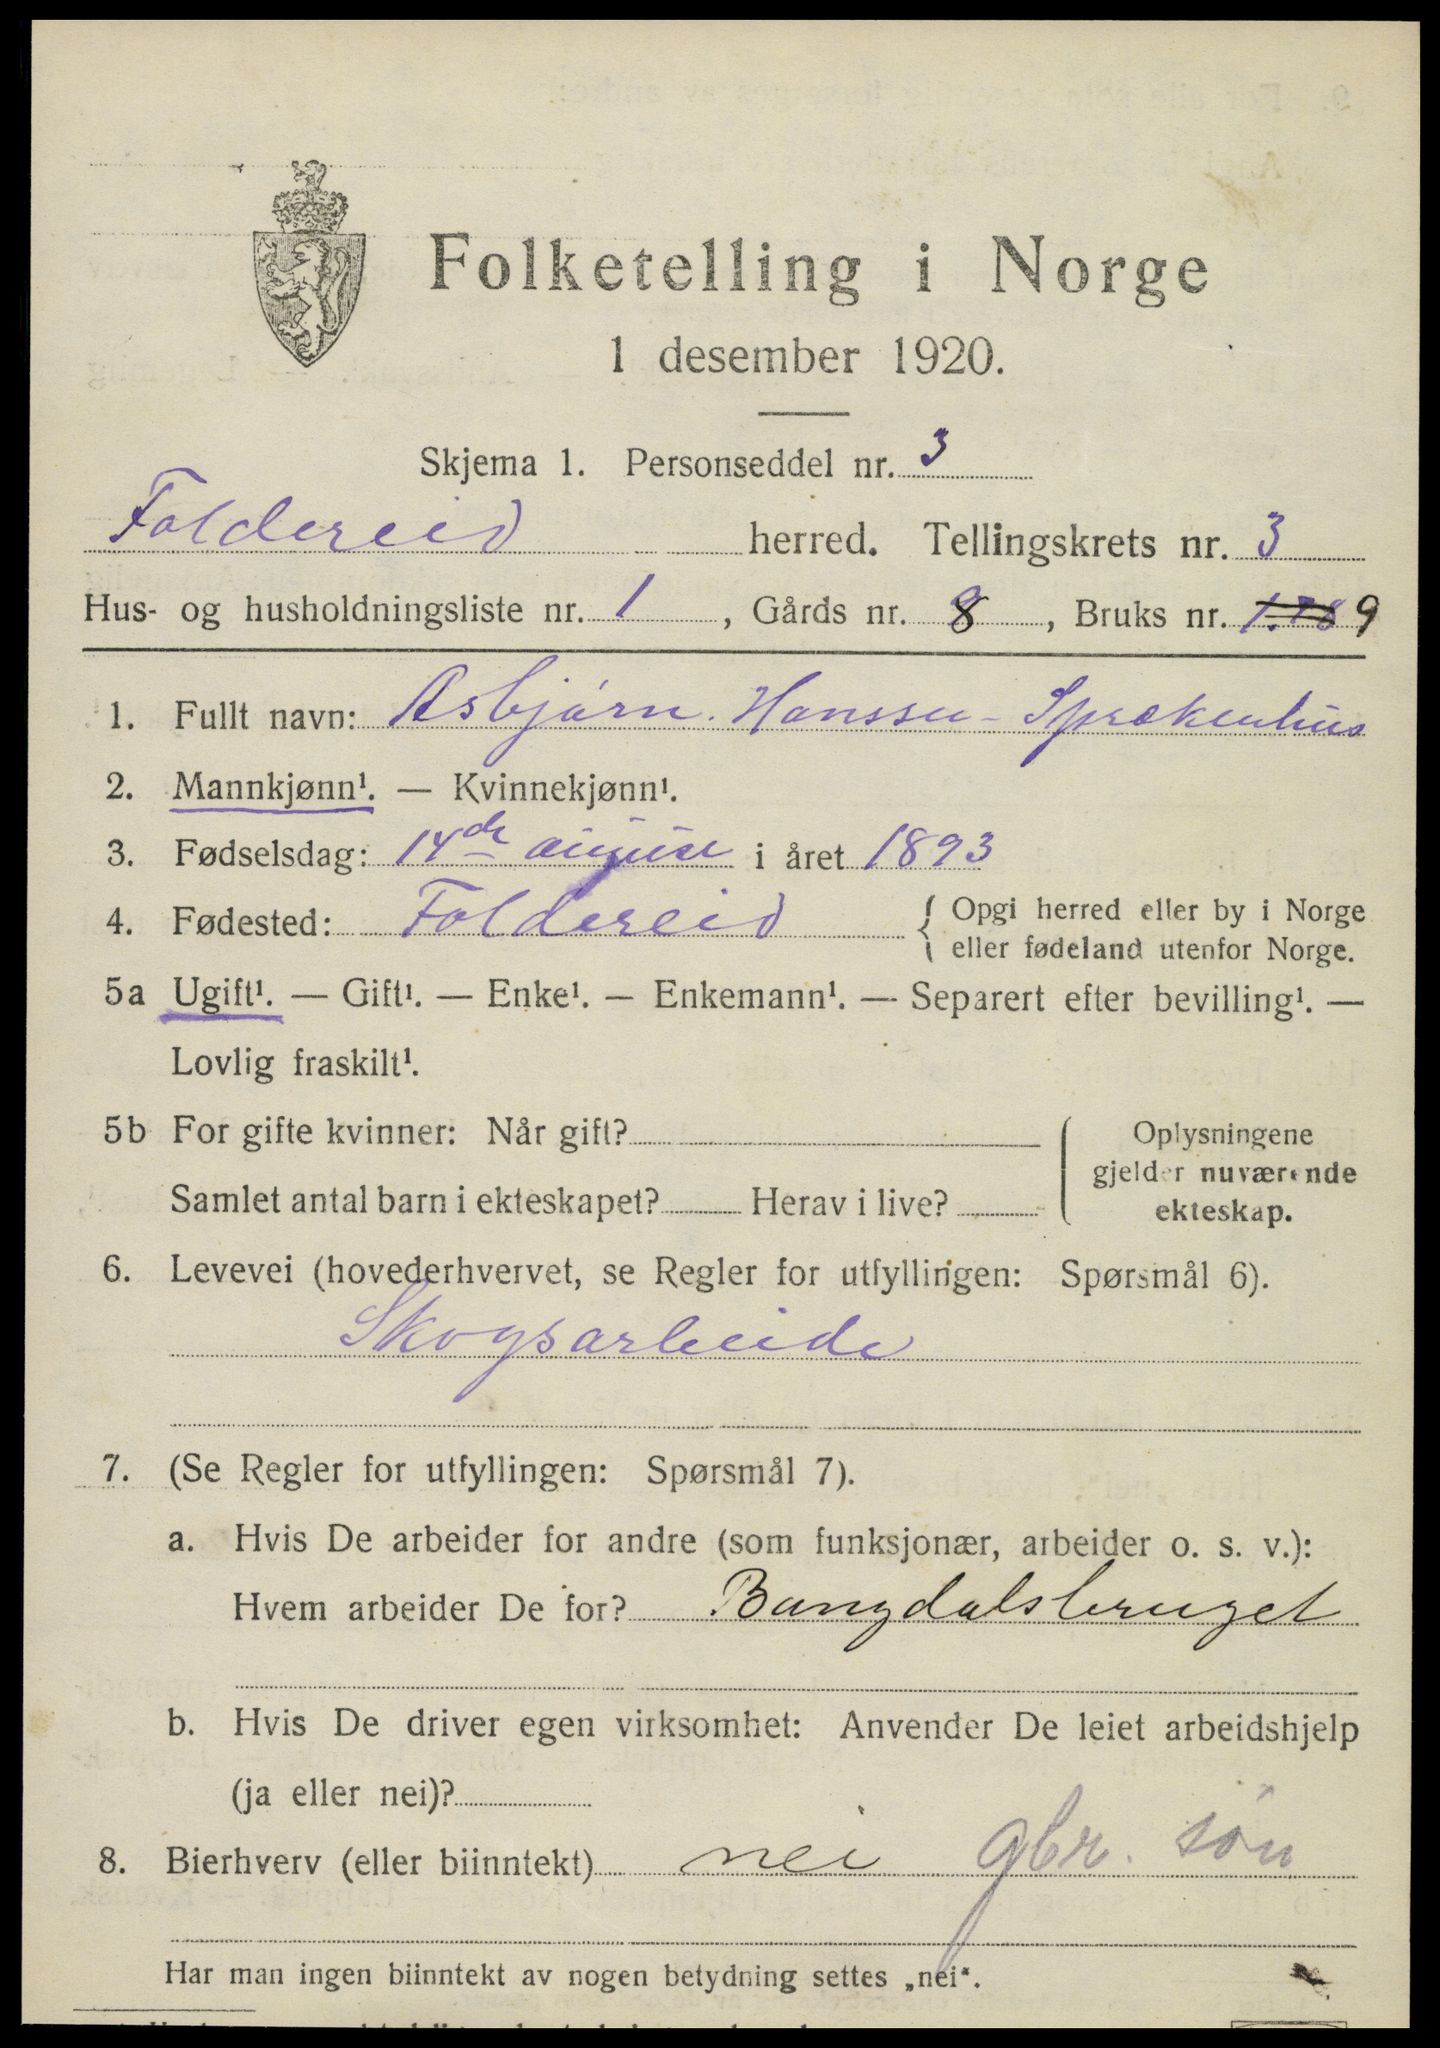 Folketelling i Norge
1 desember 1920.
Skjema 1. Personseddel nr. 3
Foldereid herred. Tellingskrets nr. 3
Hus- og husholdningsliste nr. 1, Gårds nr. 8, Bruks nr. 9
1. Fullt navn: Asbjørn Hanssen Sprækenhus
2. Mannkjønn¹. — Kvinnekjønn¹.
3. Fødselsdag: 14de august i året 1893
4. Fødested: Foldereid { Opgi herred eller by i Norge
eller fødeland utenfor Norge.
5a Ugift¹. — Gift¹. — Enke¹. — Enkemann¹. — Separert efter bevilling¹. —
Lovlig fraskilt¹.
5b For gifte kvinner: Når gift?
Samlet antal barn i ekteskapet? Herav i live?
Oplysningene
gjelder nuværende
ekteskap.
6. Levevei (hovederhvervet, se Regler for utfyllingen: Spørsmål 6).
Skogsarbeide
7. (Se Regler for utfyllingen: Spørsmål 7).
a. Hvis De arbeider for andre (som funksjonær, arbeider o. s. v.):
Hvem arbeider De for? Bangdalsbruget
b. Hvis De driver egen virksomhet: Anvender De leiet arbeidshjelp
(ja eller nei)?
8. Bierhverv (eller biinntekt) nei gbr. søn
Har man ingen biinntekt av nogen betydning settes „nei“.